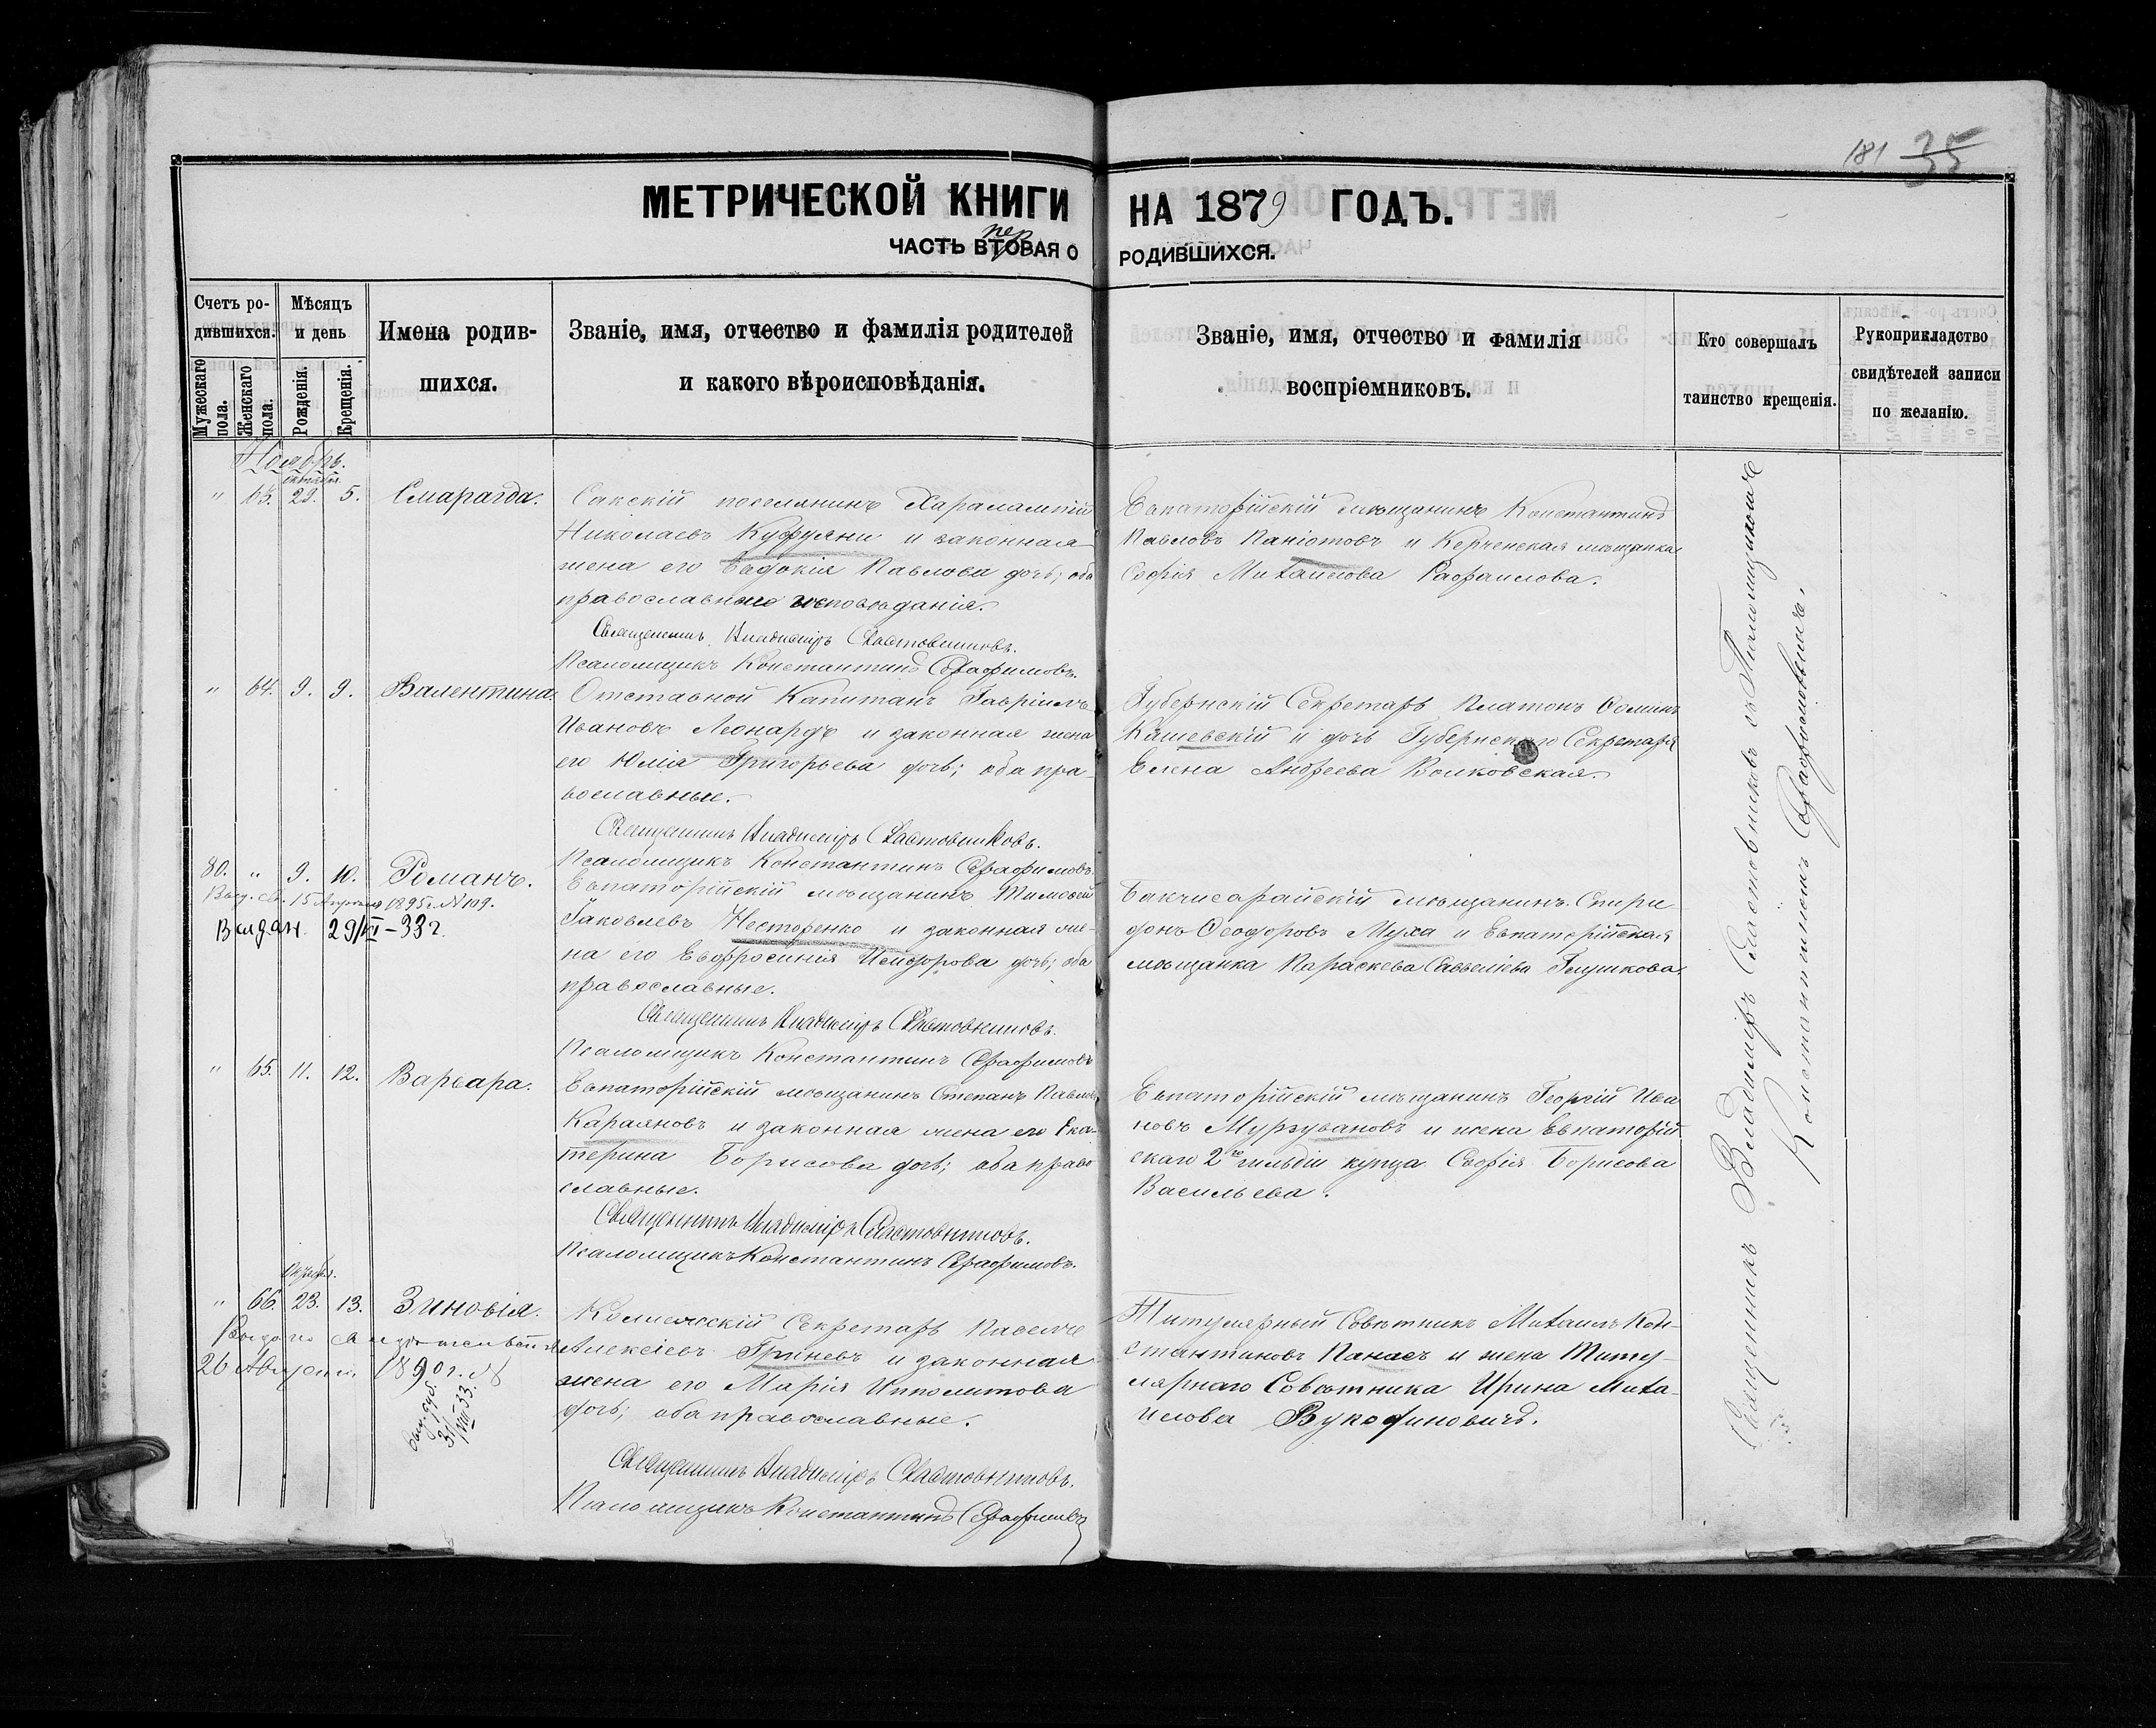 181 35
МЕТРИЧЕСКОЙ КНИГИ НА 1879 ГОДЪ.
пер
ЧАСТЬ ВТОРАЯ О РОДИВШИХСЯ.
Счетъ ро-
дившихся.
Мужескаго пола.
Женскаго пола.
Мѣсяцъ
и день
Рожденія.
Крещенія.
Имена родив-
шихся.
Званіе, имя, отчество и фамилія родителей
и какого вѣроисповѣданія.
Званіе, имя, отчество и фамилія
воспріемниковъ.
Кто совершалъ
таинство крещенія.
Рукоприкладство
свидѣтелей записи
по желанію.
Ноябрь.
октября
" 63. 29. 5. Смарагда.
Сакскій поселянинъ Харалампій
Николаевъ Куфуяни и законная
жена его Евдокія Павлова дочь; оба
православнаго исповѣданія.
Священникъ Владиміръ
Псаломщикъ Константинъ Серафимовъ.
Евпаторійскій мѣщанинъ Константинъ
Павловъ Паніотовъ и Керченская мѣщанка
Софія Михайлова Рафаилова.
" 64. 9. 9. Валентина.
Отставной Капитанъ Гавріилъ
Ивановъ Леонардъ и законная жена
его Юлія Григорьева дочь; оба пра-
вославные.
Священникъ Владиміръ
Псаломщикъ Константинъ Серафимовъ.
Губернскій Секретарь Платонъ Ѳоминъ
Кашевскій и дочь Губернскаго Секретаря
Елена Андреева Волковская.
80. " 9. 10. Романъ.
Выд. св. 15 Апреля 1895 г. № 109.
Выдан. 29/XI-33 г.
Евпаторійскій мѣщанинъ Тимоѳей
Іаковлевъ Несторенко и законная же-
на его Евфросинія Исидорова дочь; оба
православные.
Священникъ Владиміръ
Псаломщикъ Константинъ Серафимовъ
Бакчисарайскій мѣщанинъ Спири
донъ Ѳеодоровъ Муха и Евпаторійская
мѣщанка Параскева Савельева Глушкова.
" 65. 11. 12. Варвара.
Евпаторійскій мѣщанинъ Степанъ Павловъ
Караяновъ и законная жена его Ека-
терина Борисова дочь; оба право
славные.
Священникъ Владиміръ
Псаломщикъ Константинъ Серафимовъ.
Евпаторійскій мѣщанинъ Георгій Ива
новъ Мурзувановъ и жена Евпаторій
скаго 2й гильдіи купца Софія Борисова
Васильева.
Октября.
" 66. 23. 13. Зиновія.
Выдано свидетельство
26 Августа 1890 г. №
выд. дуб.
31/VIII 33.
Коллежскій Секретарь Павелъ
Алексіевъ Гриневъ и законная
жена его Марія Ипполитова
дочь; оба православные.
Священникъ Владиміръ
Псаломщикъ Константинъ Серафимовъ
Титулярный Совѣтникъ Михаилъ Кон-
стантиновъ Панаевъ и жена Титу-
лярнаго Совѣтника Ирина Миха-
илова Вукотиновичъ.
Священникъ Владиміръ съ Псаломщикомъ
Константиномъ Серафимовымъ.